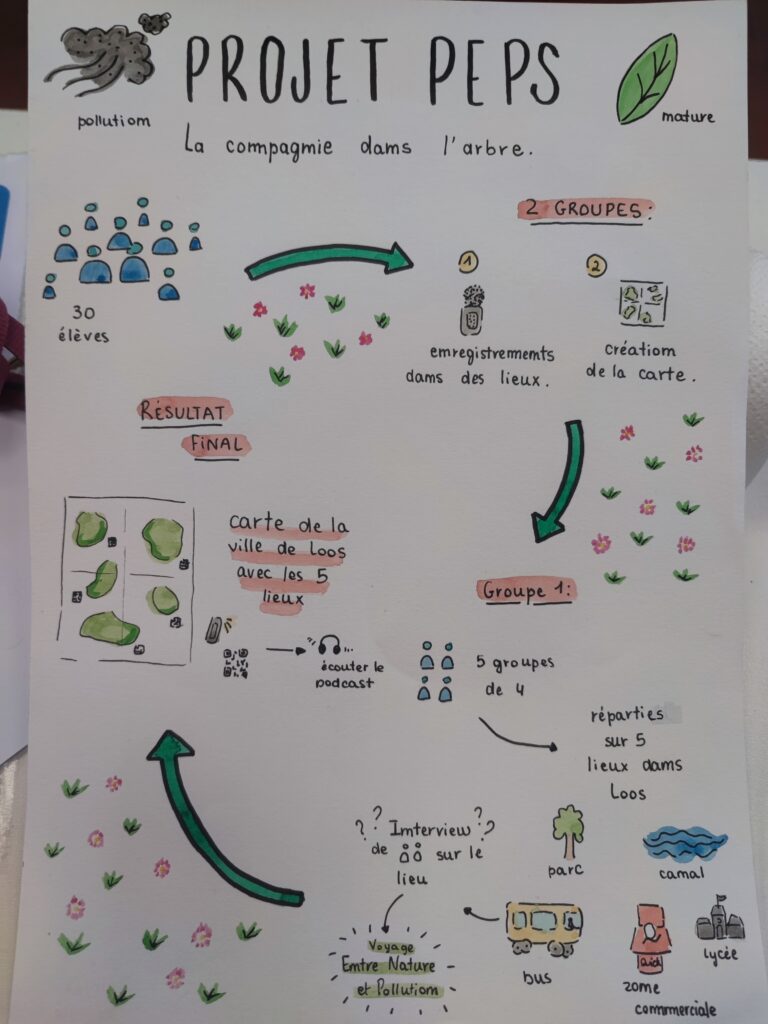 PROJET PEPS
pollution
nature
La compagnie dans l'arbre.
30
élèves
2 GROUPES:
1
2
enregistrements
dans des lieux.
création
de la carte.
Groupe 1:
5 groupes
de 4
réparties
sur 5
lieux dans
Loos
parc
canal
bus
zone
commerciale
lycée
? ? Interview ? ?
de sur le
lieu
Voyage
Entre Nature
et Pollution
RÉSULTAT
FINAL
carte de la
ville de Loos
avec les 5
lieux
écouter le
podcast